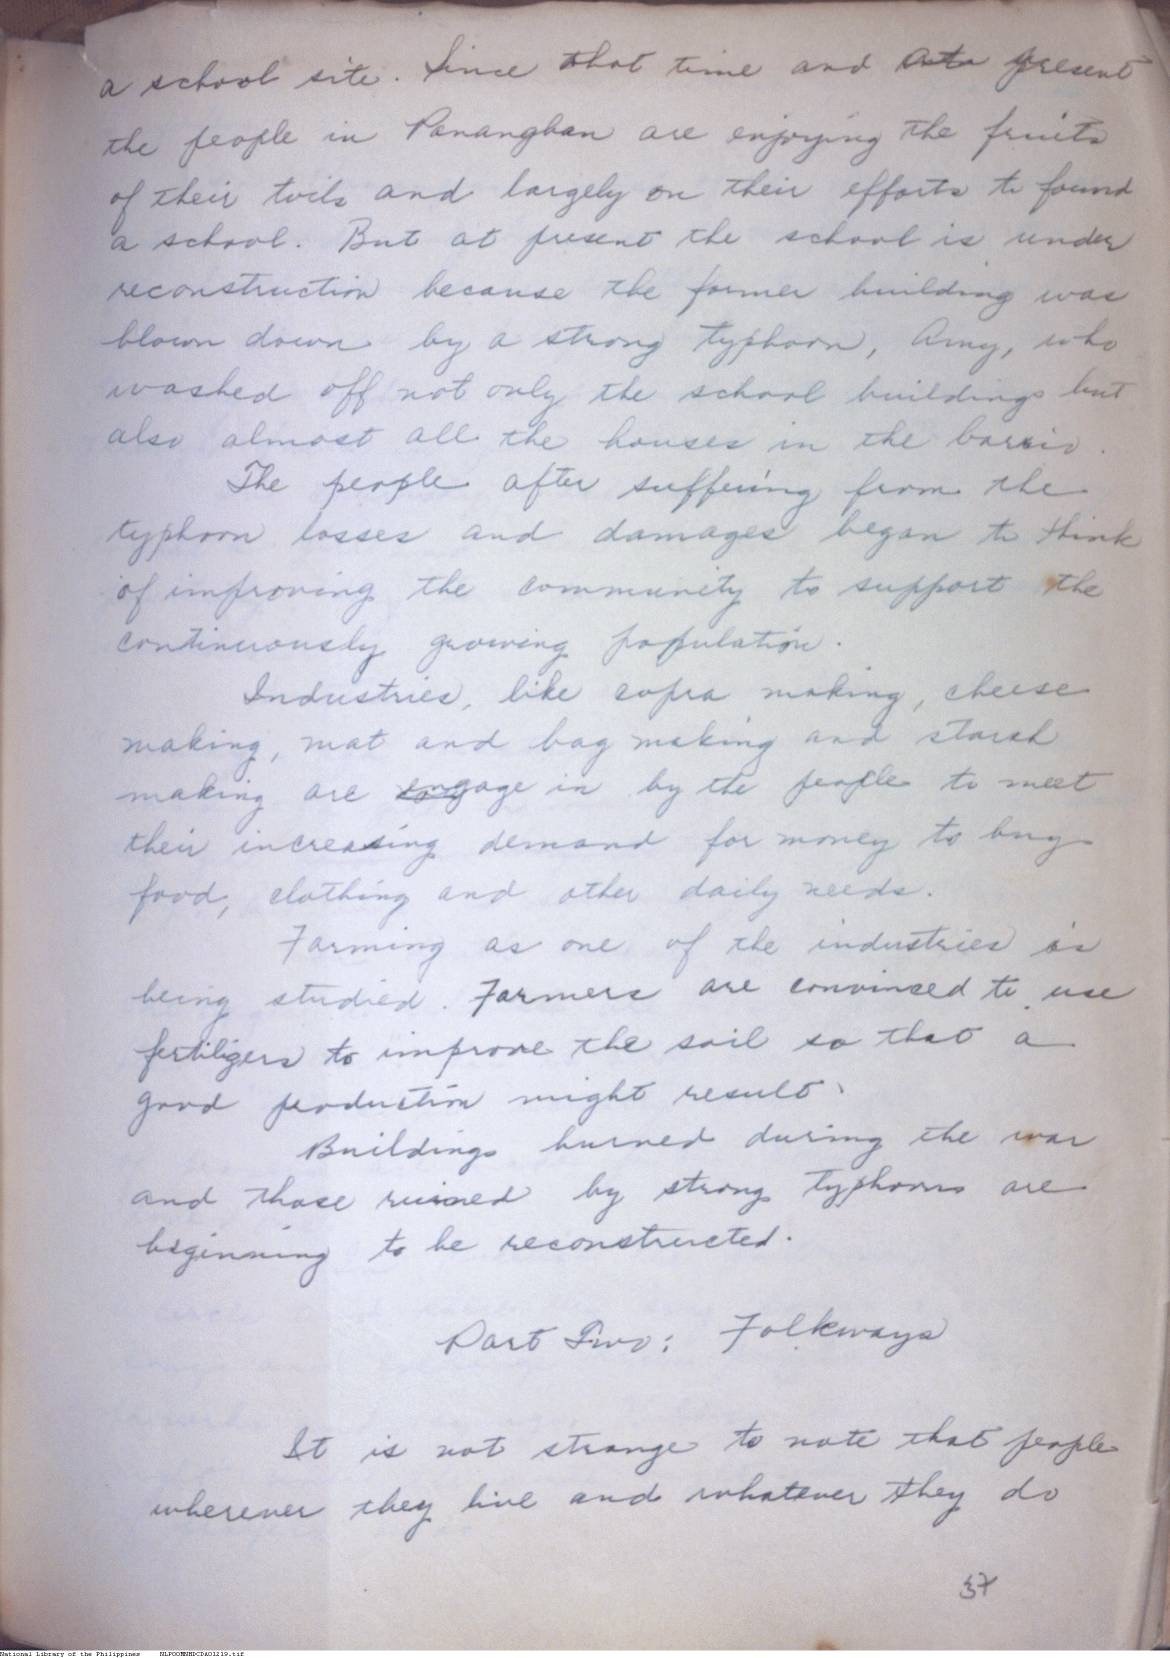 a school site. Since that time and at present
the people in Pananghan are enjoying the fruits
of their toils and largely on their efforts to found
a school. But at present the school is under
reconstruction because the former building was
blown down by a strong typhoon, Amy, who
washed off not only the school buildings but
also almost all the houses in the barrio.
The people after suffering from the
typhoon losses and damages began to think
of improving the community to support the
continuously growing population.
Industries, like copra making, cheese
making, mat and bag making and starch
making are engage in by the people to meet
their increasing demand for money to buy
food, clothing and other daily needs.
Farming as one of the industries is
being studied. Farmers are convinced to use
fertilizers to improve the soil so that a
good production might result.
Buildings burned during the war
and those ruined by strong typhoons are
beginning to be reconstructed.
Part Two: Folkways
It is not strange to note that people
wherever they live and whatever they do
37
National Library of the Philippines NLPOOMNHDCDA01219.tif